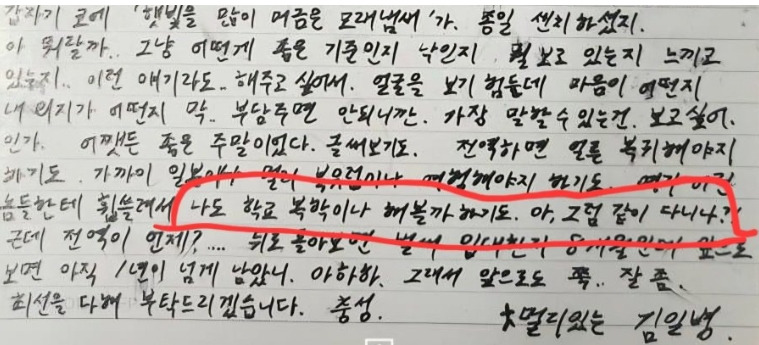 갑자기 코에 '햇빛을 많이 머금은 모래냄새'가. 종일 센치하셨지.
아 뭐랄까.. 그냥 어떤게 좋은 기준인지 낙인지 뭘 보고 있는지 느끼고
있는지.. 이런 얘기라도.. 해주고 싶어서. 얼굴을 보기 힘든데 마음이 어떤지
내 의지가 어떤지 막.. 부담주면 안되니깐. 가장 말할수있는건. 보고싶어.
인가. 어쨋든 좋은 주말이었다. 글써보기도. 전역하면 얼른 복귀해야지
하기도. 가까이 일본이나 멀리 북유럽이나 여행해야지 하기도.
놈들한테 휩쓸려서 나도 학교 복학이나 해볼까 하기도. 아, 그럼 같이 다니나?
근데 전역이 언제?.... 뒤로 돌아보면 벌써 입대한지 8개월인데 앞으로
보면 아직 1년이 넘게 남았니. 아하하. 그래서 앞으로도 쭉.. 잘 좀.
최선을 다해 부탁드리겠습니다. 충성.
멀리있는 김일병.